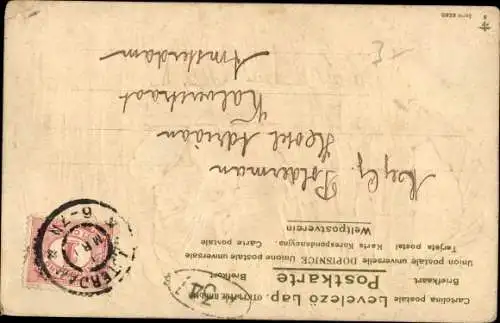 Cartolina postale bevelező lap. ОТКРЫТОЕ ПИСЬМО
Briefkaart Postkarte Brefkort
Union postale universelle DOPISNICE Unione postale universale
Tarjeta postal Karta Korespondencyjna. Carte postale
Weltpostverein
342
6-7N
Polderman
Hotel Adrian
Kalverstraat
Amsterdam